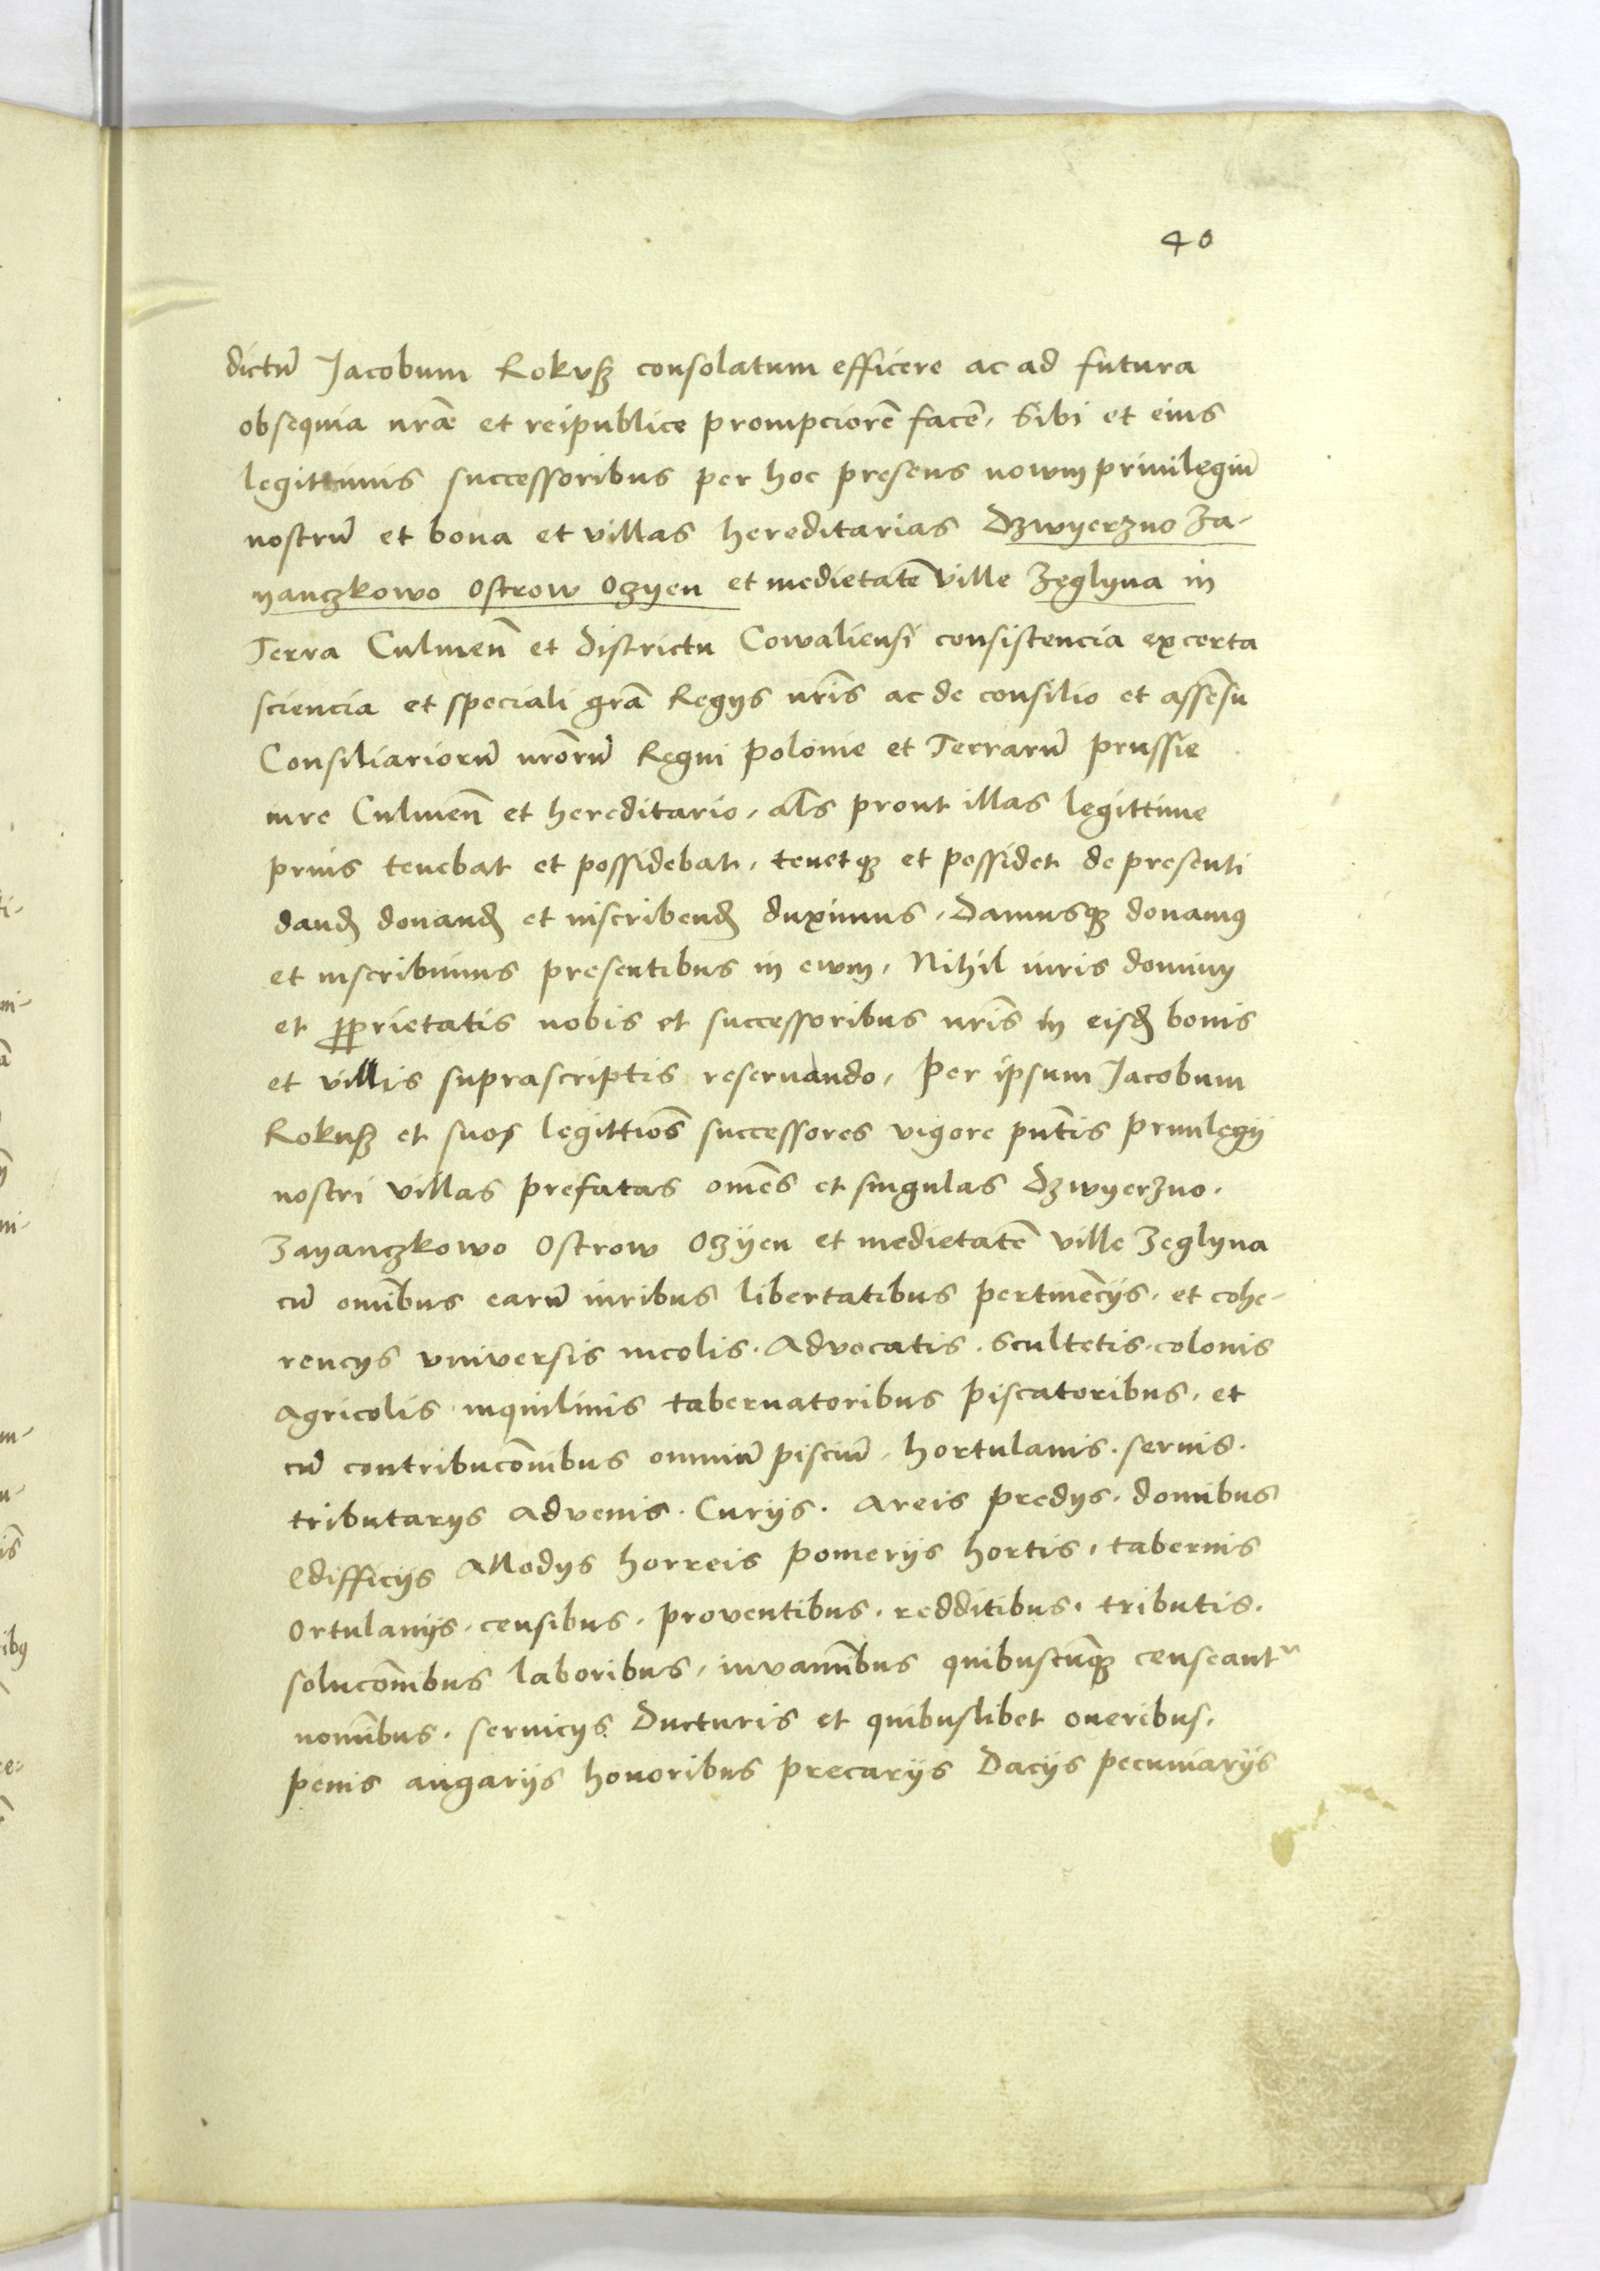 40
dictū Jacobum Rokusz consolatum efficere ac ad futura
obsequia nr̄ae et reipublice prompciorē facē, Sibi et eius
legittimis successoribus per hoc presens nowm priuilegiū
nostrū et bona et villas hereditarias Dzwyerzno Za-
yanczkowo Ostrow Oczyen et medietatē ville Zeglyna in
Terra Culmeñ et districtu Cowaliensi consistencia ex certa
sciencia et speciali grā Regijs nrīs ac de consilio et assēsu
Consiliariorū nrōrū Regni Polonie et Terrarū Prussie
iure Culmeñ et hereditario, als prout illas legittime
prius tenebat et possidebat, tenetqȝ et possidet de presenti
dandꝭ donandꝭ et inscribendꝭ duximus, Damusqȝ donamꝰ
et inscribimus presentibus in ewm, Nihil iuris dominij
et ꝓprietatis nobis et successoribus nrīs in eisdꝭ bonis
et villis suprascriptis reseruando, Per ipsum Jacobum
Rokusz et suos legittiōs successores vigore pn̄tis priuilegij
nostri villas prefatas om̄es et singulas Dzwyerzno.
Zayanczkowo Ostrow Oczijen et medietatē ville Zeglyna
cū omībus earū iuribus libertatibus pertinēcijs. et cohe-
rencijs vniversis incolis. Advocatis. Scultetis. colonis
Agricolis inquilinis tabernatoribus piscatoribus. et
cū contribucōnibus omniū pisciū. hortulanis. seruis.
tributarijs Advenis. Curijs. Areis predijs. domibus
Edifficijs Allodijs horreis pomerijs hortis, tabernis
Ortulanijs. censibus. proventibus. redditibus. tributis.
solucōnibus laboribus, iuvamībus quibuscūqȝ censeantᵘ
nomībus. seruicijs Ducturis et quibuslibet oneribus.
penis angarijs honoribus precarijs Dacijs pecuniarijs